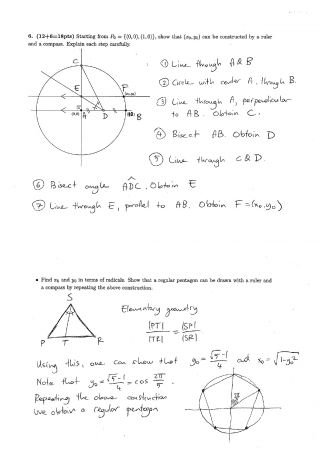 6. (12+6=18pts) Starting from P₀ = {(0,0),(1,0)}, show that (x₀,y₀) can be constructed by a ruler
and a compass. Explain each step carefully.
C
E
F
A
D
B
① Line through A & B
② Circle with center A, through B.
③ Line through A, perpendicular
to AB. Obtain C.
④ Bisect AB. Obtain D
⑤ Line through C & D.
⑥ Bisect angle ADC. Obtain E
⑦ Line through E, parallel to AB. Obtain F = (x₀,y₀)
• Find x₀ and y₀ in terms of radicals. Show that a regular pentagon can be drawn with a ruler and
a compass by repeating the above construction.
S
P T R
Elementary geometry
|PT| / |TR| = |SP| / |SR|
Using this, one can show that y₀ = (√5-1)/4 and x₀ = √(1-y₀²)
Note that y₀ = (√5-1)/4 = cos 2π/5 .
Repeating the above construction
we obtain a regular pentagon